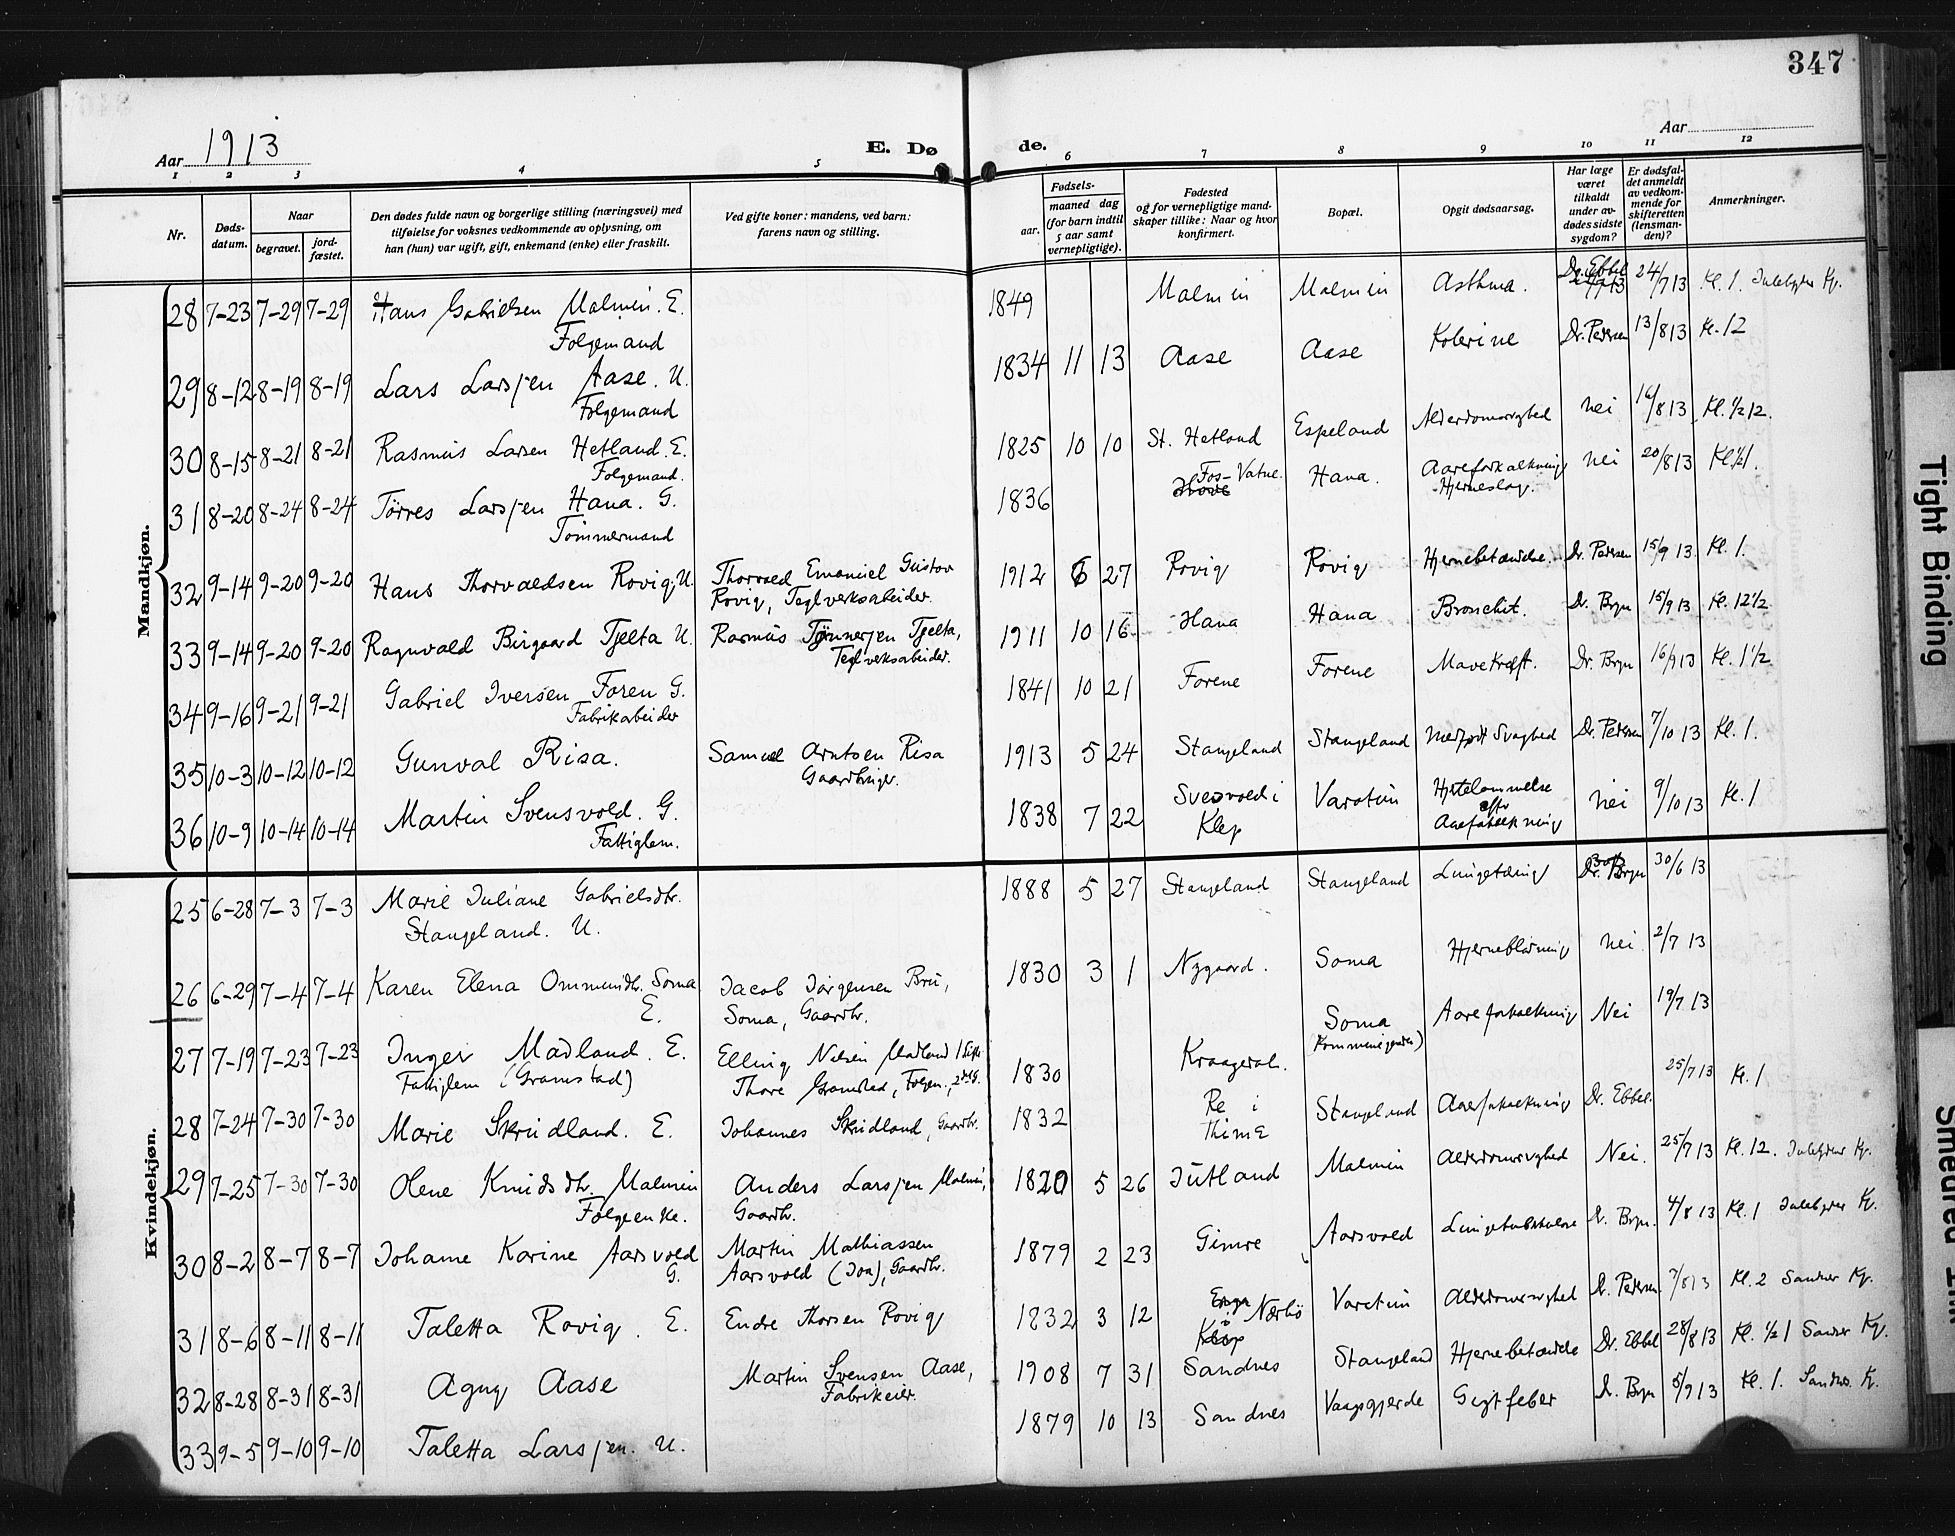 347
Aar 1913
E. Dø
de.
Aar
1 2 3 4 5 6 7 8 9 10 11 12
Nr.
Døds-
datum.
Naar
begravet.
jord-
fæstet.
Den dødes fulde navn og borgerlige stilling (næringsvei) med
tilføielse for voksnes vedkommende av oplysning, om
han (hun) var ugift, gift, enkemand (enke) eller fraskilt.
Ved gifte koner: mandens, ved barn:
farens navn og stilling.
Fødsels-
aar.
maaned dag
(for barn indtil
5 aar samt
vernepligtige).
Fødested
og for vernepligtige mand-
skaper tillike: Naar og hvor
konfirmert.
Bopæl.
Opgit dødsaarsag.
Har læge
været
tilkaldt
under av-
dødes sidste
sygdom?
Er dødsfal-
det anmeldt
av vedkom-
mende for
skifteretten
(lensman-
den)?
Anmerkninger.
Mandkjøn.
28 7-23 7-29 7-29 Hans Gabrielsen Malmin. E. 1849 Malmin Malmin Asthma. Dr. Ebbel 24/7 13 Kl. 1.
Folgemand
29 8-12 8-19 8-19 Lars Larsjen Aase. U. 1834 11 13 Aase Aase Kolerine Dr. Pedersen 13/8 13 Kl. 12
Folgemand
30 8-15 8-21 8-21 Rasmus Larsen Hetland. E. 1825 10 10 St. Hetland Espeland Alderdomssvghed nei 16/8 13 Kl. 1/2 12.
Folgemand.
31 8-20 8-24 8-24 Tørres Larsjen Hana. G. 1836 Fos-Vatne. Hana. Aareforkalkning nei 20/8 13 Kl 1/2 1.
Tømmermand Hjerneslag.
32 9-14 9-20 9-20 Hans Thorvaldsen Rovig, U. Thorvald Emanuel Gustav 1912 6 27 Rovig Rovig Hjernebetændelse. Dr. Pedersen 15/9 13. Kl. 1.
Rovig, Teglverksarbeider.
33 9-14 9-20 9-20 Ragnvald Birgaard Tjelta U. Rasmus Tønnersen Tjelta, 1911 10 16 Hana Hana Bronchit. Dr. Bryn 15/9 13 Kl. 12 1/2
Teglverksarbeider.
34 9-16 9-21 9-21 Gabriel Iversen Foren G. 1841 10 21 Forene Forene Mavekræft. Dr. Bryn 16/9 13 Kl. 1 1/2
Fabrikarbeider
35 10-3 10-12 10-12 Gunval Risa. Samuel Arntsen Risa 1913 5 24 Stangeland Stangeland Medfødt Svaghed Dr. Pedersen 7/10 13 Kl. 1.
Gaardbruger.
36 10-9 10-14 10-14 Martin Svensvold. G. 1838 7 22 Svesvold i Varatun Hjertelammelse nei 9/10 13 Kl. 1
Fattiglem. Klep efter
Aareforkalkning
Kvindekjøn.
25 6-28 7-3 7-3 Marie Juliane Gabrielsdtr. 1888 5 27 Stangeland Stangeland Lungetæring Dr. Bryn 30/6 13
Stangeland. U.
26 6-29 7-4 7-4 Karen Elena Ommundtr. Soma Jacob Jørgensen Bru, 1830 3 1 Nygaard. Soma Hjerneblødning nei 2/7 13
E. Soma, Gaardbr.
27 7-19 7-23 7-23 Inger Madland. E. Elling Nilsen Madland 1830 Kraagerøh. Soma Aareforkalkning Nei 19/7 13
Fattiglem (Gramstad) Thore Gramstad, Folgem.,
28 7-24 7-30 7-30 Marie Skrudland. E. Johannes Skrudland, Gaardbr. 1832 Re i Stangeland Aareforkalkning Dr. Ebbel. 25/7 13 Kl. 1
Thime
29 7-25 7-30 7-30 Olene Knudsdtr. Malmin Anders Larsjen Malmin, 1820 5 26 Jutland Malmin Alderdomssvghed Nei. 25/7 13 Kl. 12.
Folgeenke. Gaardbr.
30 8-2 8-7 8-7 Johanne Karine Aarsvold Martin Mathiassen 1879 2 23 Gimre Aarsvold Lungetuberkulose Dr. Bryn. 4/8 13 Kl. 1
G. Aarsvold (Joa), Gaardbr.
31 8-6 8-11 8-11 Taletta Rovig. E. Endre Thorsen Rovig 1832 3 12 i Nærbö Varatun Alderdomssvghed Dr. Pedersen 7/8 13 Kl. 2 Sandnes Kg.
Klep
32 8-28 8-31 8-31 Agny Aase Martin Svensen Aase, 1908 7 31 Sandnes Stangeland Hjernebetændelse Dr. Ebbel 28/8 13 Kl. 1/2 1 Sandnes Kg.
Fabrikeier.
33 9-5 9-10 9-10 Taletta Larsjen. U. 1879 10 13 Sandnes Vaagsgjerde Gigtfeber Dr. Bryn 5/9 13 Kl. 1. Sandnes K.
Tight Binding
Smeared Ink